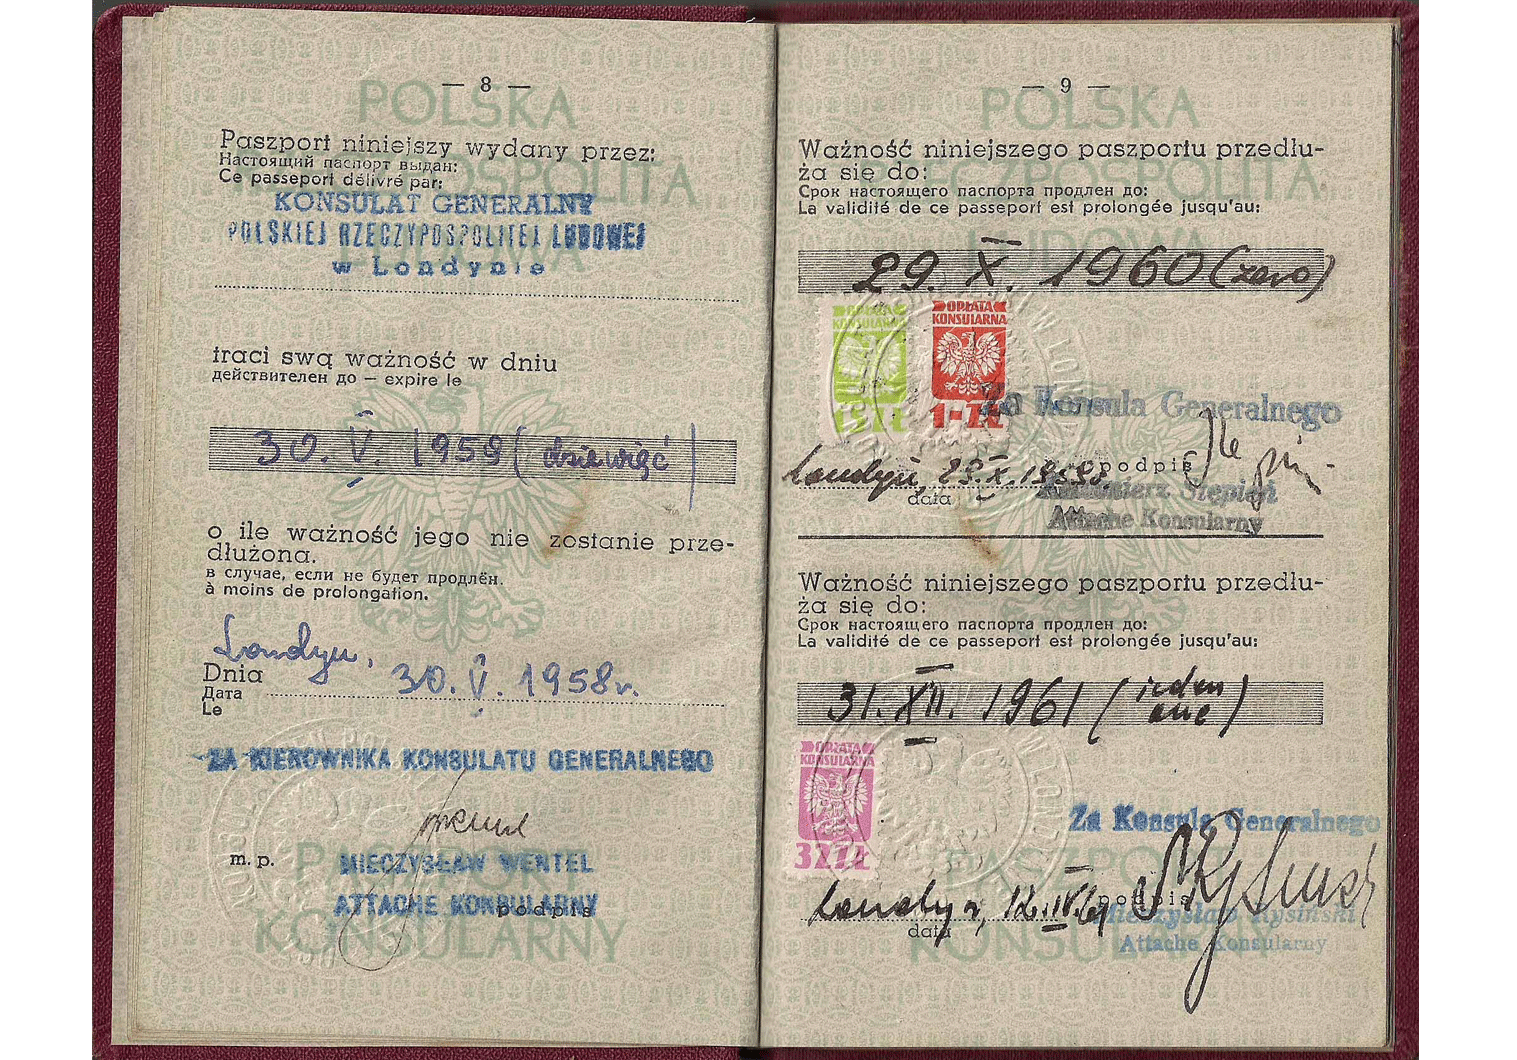 — 8 —
POLSKA
Paszport niniejszy wydany przez:
Настоящий паспорт выдан:
Ce passeport délivré par:
KONSULAT GENERALNY
POLSKIEJ RZECZYPOSPOLITEJ LUDOWEJ
w Londynie
traci swą ważność w dniu
действителен до — expire le
30. V. 1959 (dziewięć)
o ile ważność jego nie zostanie prze-
dłużona.
в случае, если не будет продлён.
à moins de prolongation.
Londyn,
Dnia 30. V. 1958 r.
Дата
Le
ZA KIEROWNIKA KONSULATU GENERALNEGO
m. p.
MIECZYSŁAW WENTEL
ATTACHE KONSULARNY
podpis
PASZPORT
KONSULARNY
— 9 —
POLSKA
RZECZPOSPOLITA
LUDOWA
Ważność niniejszego paszportu przedłu-
ża się do:
Срок настоящего паспорта продлен до:
La validité de ce passeport est prolongée jusqu'au:
29. X. 1960 (zero)
OPŁATA KONSULARNA
OPŁATA KONSULARNA
1-ZŁ
Za Konsula Generalnego
Londyn, 29. X. 1959 r.
podpis
data
Kazimierz Stępień
Attache Konsularny
Ważność niniejszego paszportu przedłu-
ża się do:
Срок настоящего паспорта продлен до:
La validité de ce passeport est prolongée jusqu'au:
31. XII. 1961 (jeden)
OPŁATA KONSULARNA
32 ZŁ
Za Konsula Generalnego
Londyn, 12. IV. 61
podpis
data
Mieczysław Rysiński
Attache Konsularny
PASZPORT
KONSULARNY